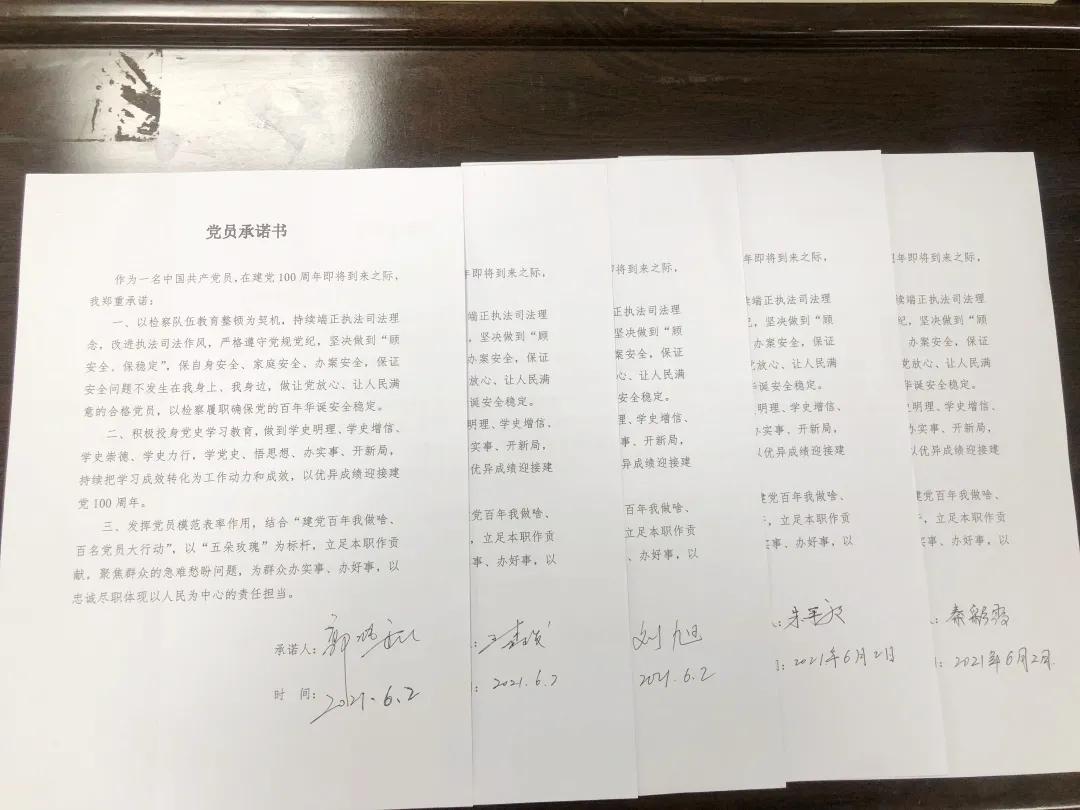 党员承诺书
作为一名中国共产党员，在建党100周年即将到来之际，
我郑重承诺：
一、以检察队伍教育整顿为契机，持续端正执法司法理
念，改进执法司法作风，严格遵守党规党纪，坚决做到“顾
安全、保稳定”，保自身安全、家庭安全、办案安全，保证
安全问题不发生在我身上、我身边，做让党放心、让人民满
意的合格党员，以检察履职确保党的百年华诞安全稳定。
二、积极投身党史学习教育，做到学史明理、学史增信、
学史崇德、学史力行，学党史、悟思想、办实事、开新局，
持续把学习成效转化为工作动力和成效，以优异成绩迎接建
党100周年。
三、发挥党员模范表率作用，结合“建党百年我做啥、
百名党员大行动”，以“五朵玫瑰”为标杆，立足本职作贡
献，聚焦群众的急难愁盼问题，为群众办实事、办好事，以
忠诚尽职体现以人民为中心的责任担当。
承诺人：郭
时 间：2021.6.2
年即将到来之际，
端正执法司法理
，坚决做到“顾
办案安全，保证
放心、让人民满
诞安全稳定。
明理、学史增信、
实事、开新局，
以优异成绩迎接建
党百年我做啥、
，立足本职作贡
事、办好事，以
：王
：2021.6.2
将到来之际，
正执法司法理
坚决做到“顾
案安全，保证
心、让人民满
安全稳定。
理、学史增信、
事、开新局，
异成绩迎接建
百年我做啥、
立足本职作贡
、办好事，以
刘旭
2021.6.2
年即将到来之际，
续端正执法司法理
，坚决做到“顾
办案安全，保证
党放心、让人民满
华诞安全稳定。
明理、学史增信、
办实事、开新局，
以优异成绩迎接建
建党百年我做啥、
，立足本职作贡
实事、办好事，以
：朱
：2021年6月2日
年即将到来之际，
持续端正执法司法理
纪，坚决做到“顾
办案安全，保证
党放心、让人民满
华诞安全稳定。
明理、学史增信、
办实事、开新局，
以优异成绩迎接建
建党百年我做啥、
，立足本职作贡
实事、办好事，以
：秦
：2021年6月2日